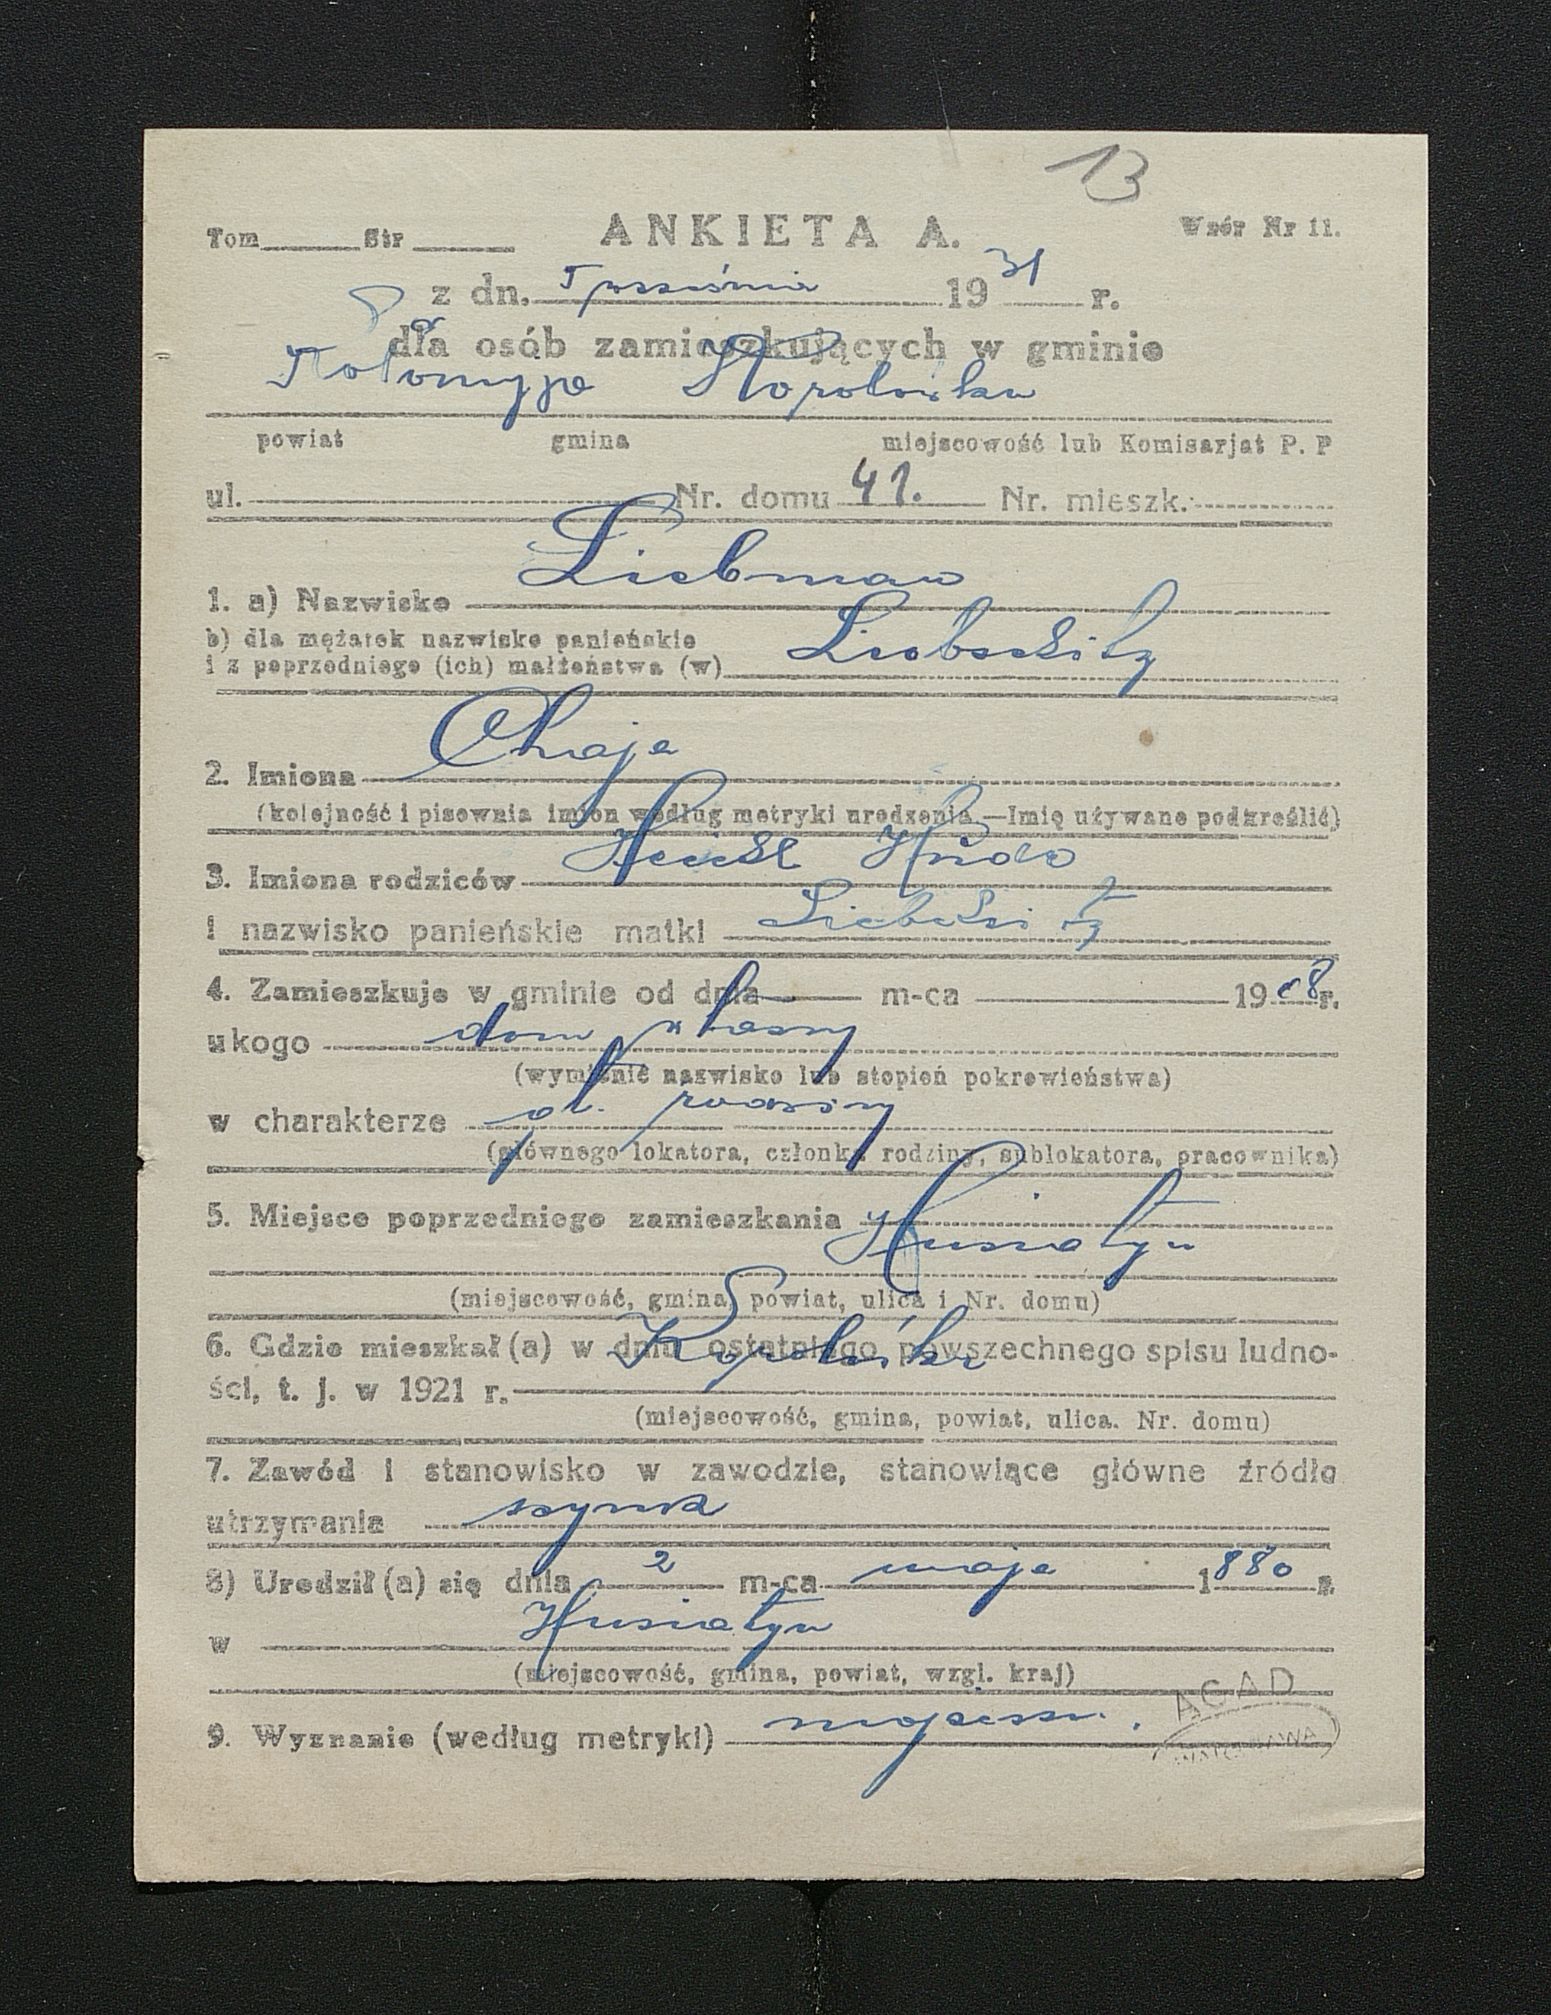 13
Tom Str ANKIETA A. Wzór Nr 11.
z dn. 5 września 1931 r.
dla osób zamieszkujących w gminie
Kołomyja Korolówka
powiat gmina miejscowość lub Komisarjat P. P
ul. Nr. domu 41. Nr. mieszk.
1. a) Nazwisko Liebman
b) dla mężatek nazwisko panieńskie
i z poprzedniego (ich) małżeństwa (w)
2. Imiona Chaja
(kolejność i pisownia imion według metryki urodzenia.—Imię używane podkreślić)
3. Imiona rodziców
i nazwisko panieńskie matki
4. Zamieszkuje w gminie od dnia — m-ca 1908 r.
u kogo dom własny
(wymienić nazwisko lub stopień pokrewieństwa)
w charakterze gł. rodziny
(głównego lokatora, członka rodziny, sublokatora, pracownika)
5. Miejsce poprzedniego zamieszkania Husiatyn
(miejscowość, gmina, powiat, ulica i Nr. domu)
6. Gdzie mieszkał (a) w dniu ostatniego powszechnego spisu ludno-
ści, t. j. w 1921 r. Korolówka
(miejscowość, gmina, powiat, ulica. Nr. domu)
7. Zawód i stanowisko w zawodzie, stanowiące główne źródło
utrzymania szynk
8) Urodził (a) się dnia 2 m-ca maja 1880 r.
w Husiatyn
(miejscowość, gmina, powiat, wzgl. kraj)
9. Wyznanie (według metryki) mojżesz.
AGAD
WARSZAWA